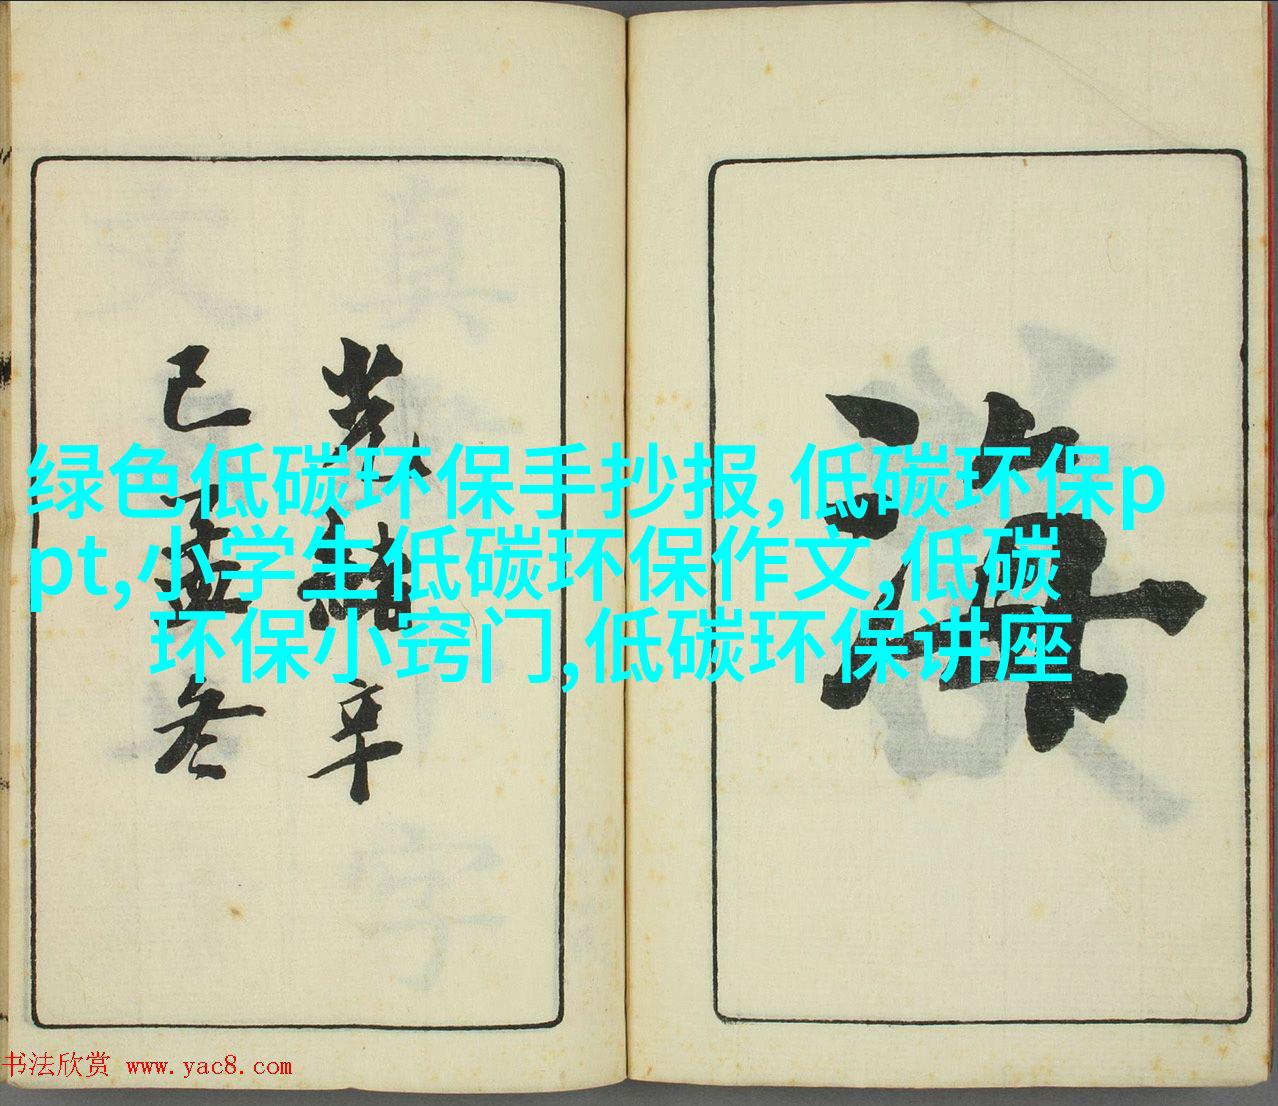 海
光緒辛
巳孟冬
绿色低碳环保手抄报,低碳环保p
pt,小学生低碳环保作文,低碳
环保小窍门,低碳环保讲座
书法欣赏 www.yac8.com